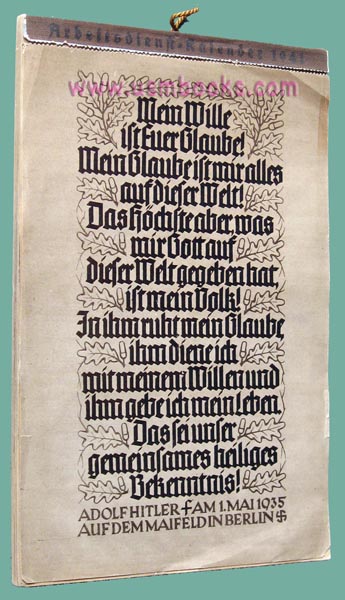 Arbeitsdienst-Kalender 1941
www.usmbooks.com
Mein Wille
ist Euer Glaube!
Mein Glaube ist mir alles
auf dieser Welt!
Das Höchste aber was
mir Gott auf
dieser Welt gegeben hat,
ist mein Volk!
In ihm ruht mein Glaube,
ihm diene ich
mit meinem Willen und
ihm gebe ich mein Leben.
Das sei unser
gemeinsames heiliges
Bekenntnis!
ADOLF HITLER AM 1. MAI 1935
AUF DEM MAIFELD IN BERLIN